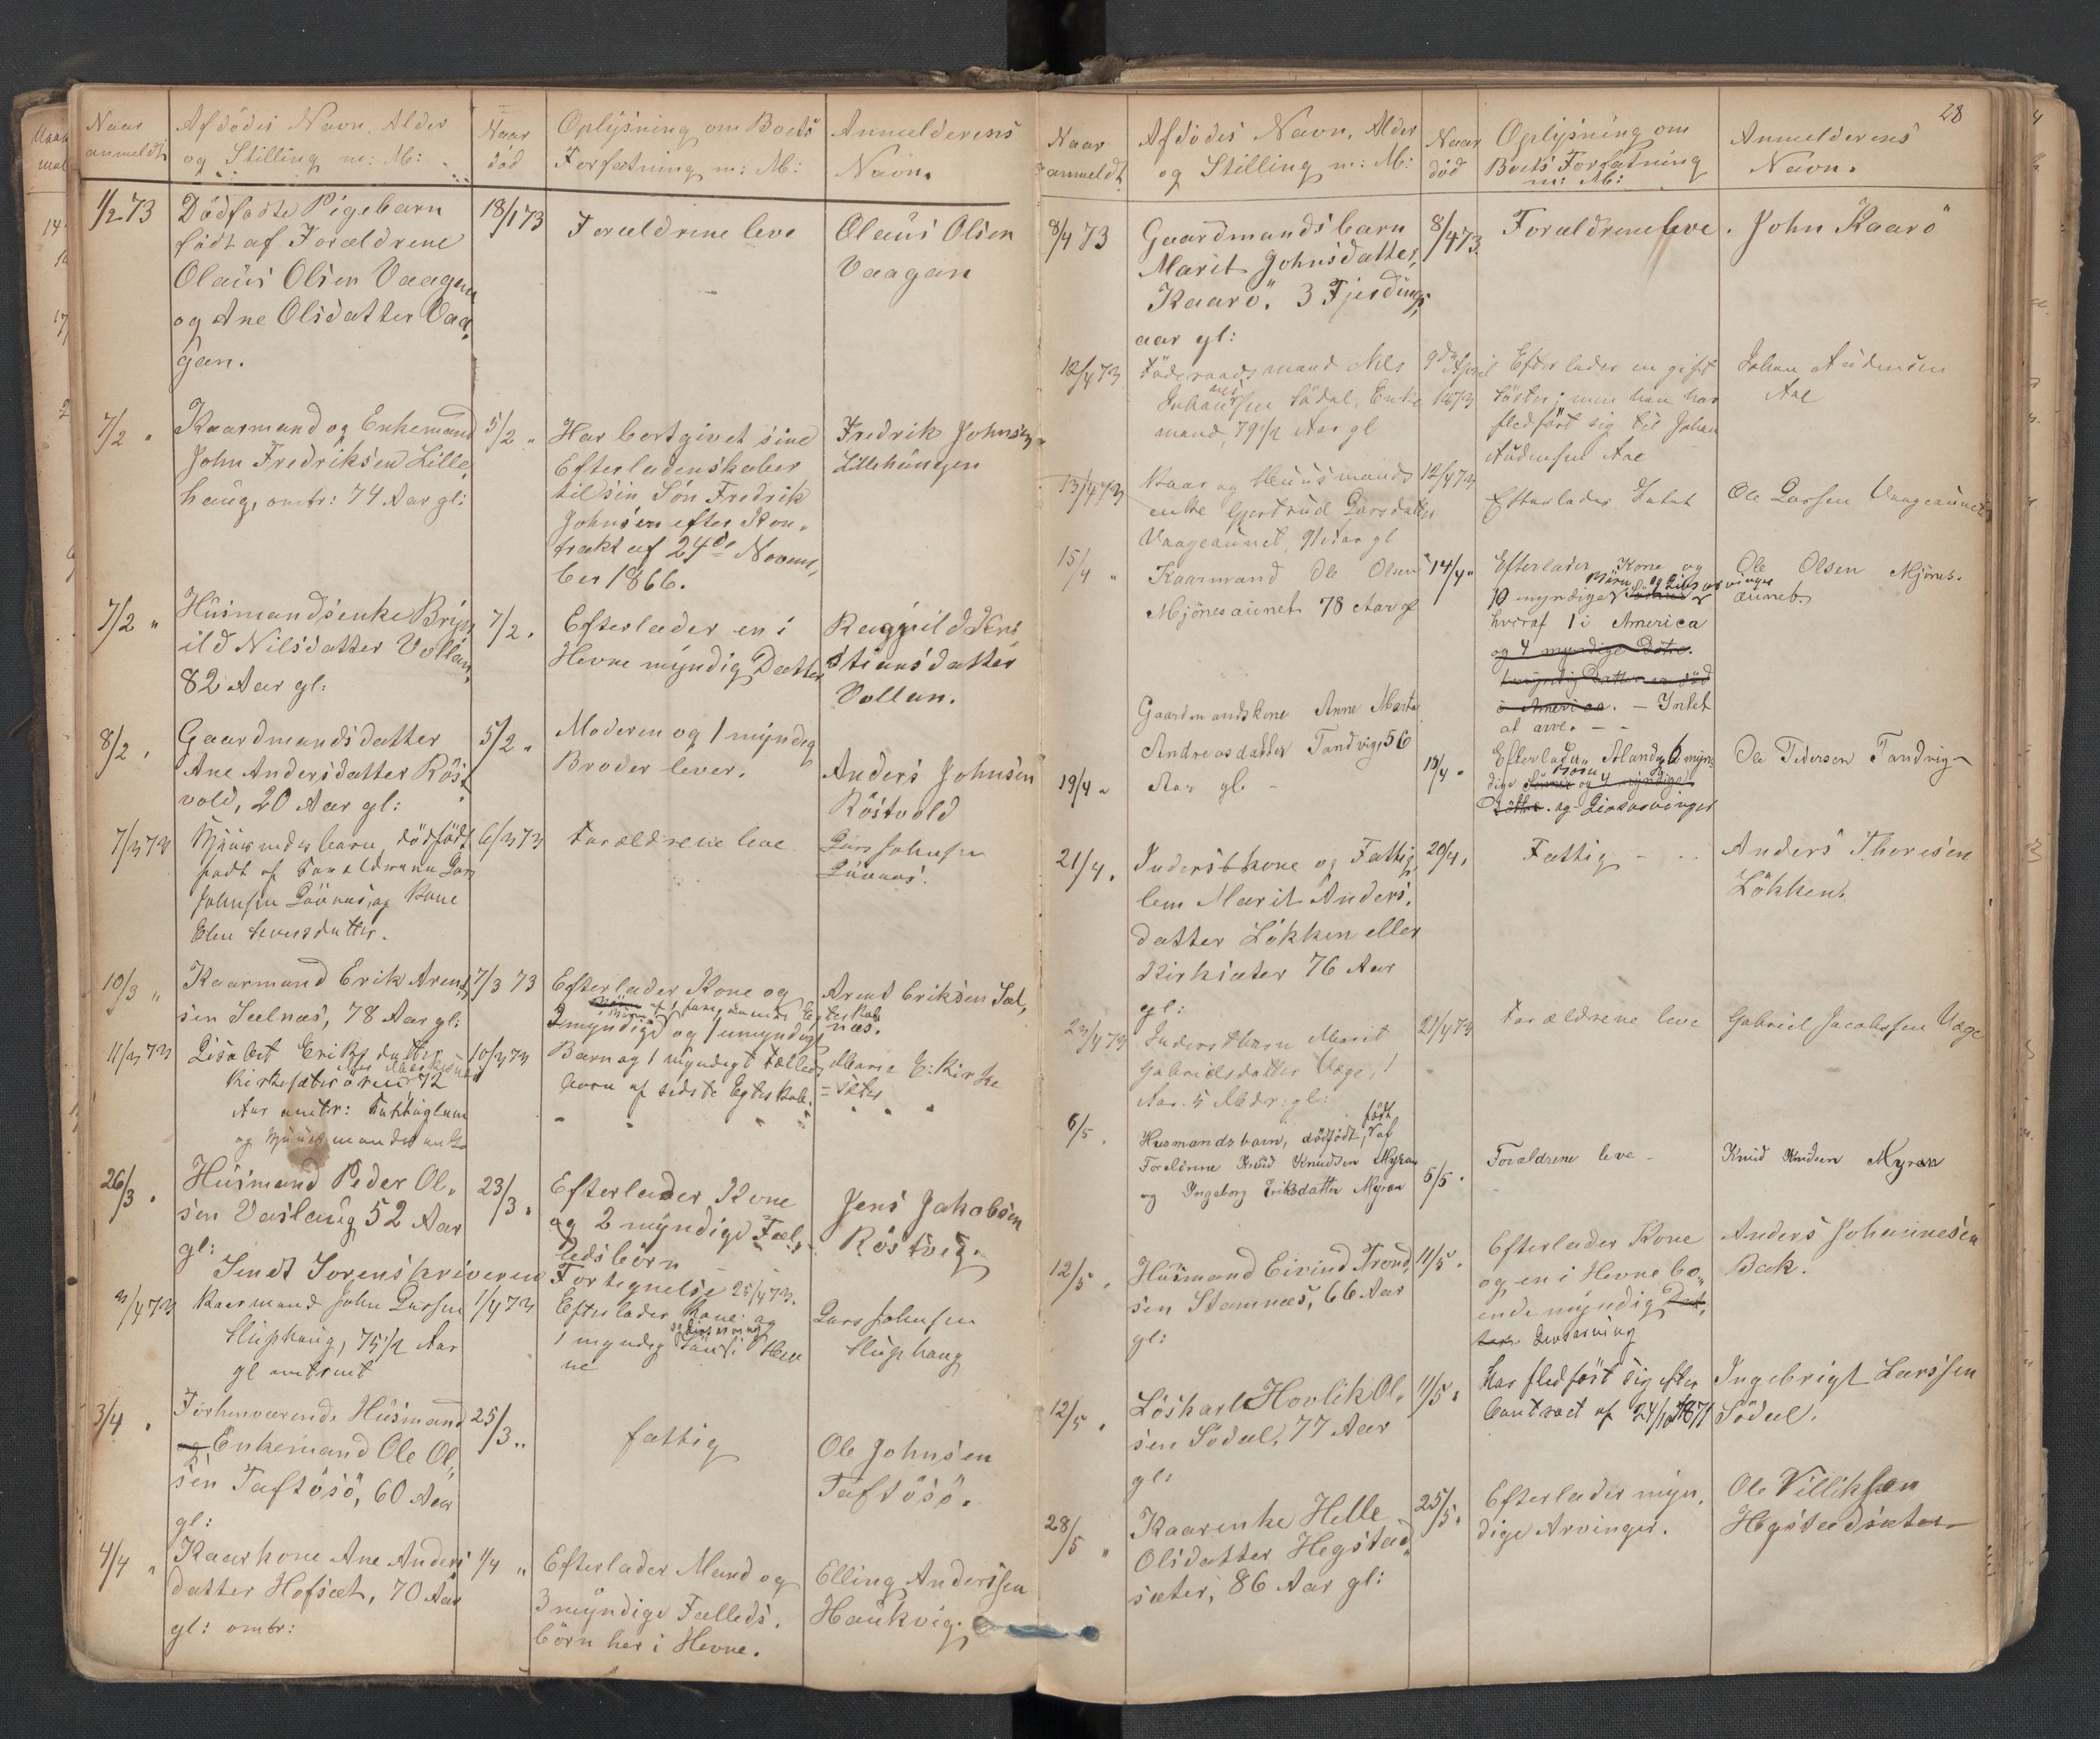 Naar anmeldt
Afdödes Navn, Alder og Stilling m: M:
Naar död
Oplysning om Boets Forfatning m: M:
Anmelderens Navn.
1/2 73
Dödfödte Pigebarn
födt af Forældrene
Olaus Olsen Vaagan
og Ane Olsdatter Vaa-
gan.
18/1 73
Forældrene leve
Olaus Olsen
Vaagan
7/2 "
Kaarmand og Enkemand
John Fredriksen Lille-
haug, omtr: 74 Aar gl:
5/2 "
Har bortgivet sine
Efterladenskaber
til sin Sön Fredrik
Johnsen efter Kon-
trakt af 24de Novem-
ber 1866.
Fredrik Johnsen
Lillehaugen
7/2 "
Husmandsenke
ild Nilsdatter Vollan,
82 Aar gl:
7/2 "
Efterlader en i
Hevne myndig Datter
Ragnild Kri-
stiansdatter
Vollan.
8/2 "
Gaardmandsdatter
Ane Andersdatter Röst-
vold, 20 Aar gl:
5/2 "
Moderen og 1 myndig
Broder lever.
Anders Johnsen
Röstvold
7/3 73
Huusmandsbarn, dödfödt
født af Forældrene Lars
Johnsen og Kone
Elen Iversdatter.
6/3 73
Forældrene leve
Lars Johnsen
10/3 "
Kaarmand Erik Arent-
sen Sælnæs, 78 Aar gl:
7/3 73
Efterlader Kone og
Börn af 1 foregaaende Egteskab
2 myndige og 1 umyndigt
Arent Eriksen Sæl-
næs.
11/3 73
Lisabet Eriksdatter
Kirksæterören 72
Aar omtr: Fattiglem
og Huusmandsenke
10/3 73
Barn og 1 myndigt Fælleds
barn af sidste Egteskab.
Marie E: Kirk-
sæter
26/3 "
Husmand Peder Ol-
sen Vaslaug 52 Aar
gl:
23/3 "
Efterlader Kone
og 2 myndige Fæl-
ledsbörn
Jens Jakobsen
Röstvig.
Sendt Sorenskriveren Fortegnelse 25/4 73.
3/4 73
Kaarmand John Larsen
Sluphaug, 75 1/2 Aar
gl omtrent
1/4 73
Efterlader Kone og
og Livsarving
1 myndig Sön i Hev-
ne
Lars Johnsen
Sluphaug
3/4 "
Forhenværende Husmand
og Enkemand Ole Ol-
sen Taftösö, 60 Aar
gl:
25/3 "
fattig
Ole Johnsen
Taftösö.
4/4 "
Kaarkone Ane Anders
datter Hofsæt, 70 Aar
gl: omtr:
1/4 "
Efterlader Mand og
3 myndige Fælleds-
börn her i Hevne.
Elling Anderssen
Haukvig.
28
Naar anmeldt
Afdödes Navn, Alder og Stilling m: M:
Naar död
Oplysning om Boets Forfatning m: M:
Anmelderens Navn.
8/4 73
Gaardmandsbarn
Marit Johnsdatter
Kaarö. 3 Fjerding-
aar gl:
8/4 73.
Forældrene leve.
John Kaarö
12/4 73
Föderaadsmand Nils
Johansen Södal, Enke
mand, 79 1/2 Aar gl
9de April 1873
Efterlader en gift
Söster; men han har
fledfört sig til Johan
Audensen Aae
Johan Audensen
Aae
13/4 73
Kaar og Huusmands
enke Gjertrud Larsdatter
Vaageaunet, 91 Aar gl
12/4 73
Efterlader Intet
Ole Larsen Vaageaunet
15/4 "
Kaarmand Ole Olsen
Mjönesaunet 78 Aar gl
14/4 "
Efterlader Kone og
Börn og Livsarvinger
10 myndige Sönner
hvoraf 1 i America
og 4 myndige Dötre.
1 myndig Datter er död
i America. - Intet
at arve. - -
Ole Olsen Mjönes-
aunet.
19/4 "
Gaardmandskone Anne Marta
Andreasdatter Tandvig, 56
Aar gl. -
18/4 "
Efterlader Mand, 6 myn-
Börn
dige Sönner og 4 myndige
Döttre. og Livsarvinger
Ole Pedersen Tandvig
21/4 "
Inderstkone og Fattig-
lem Marit Anders-
datter Lökken eller
Kirksæter 76 Aar
gl:
20/4 "
Fattig
Anders Thoresen
Lökken.
23/4 73
Inderstbarn Marit
Gabrielsdatter Vage, 1
Aar 5 Mdr: gl:
21/4 73
Forældrene leve
Gabriel Jacobsen Vage
6/5 "
Husmandsbarn, dödfödt, födt af
Forældrene Knud Knudsen Myran
og Ingeborg Eriksdatter Myran
5/5 "
Forældrene leve -
Knud Knudsen Myran
12/5 "
Husmand Eivind Trond-
sen Stamnæs, 66 Aar
gl:
11/5 "
Efterlader Kone
og en i Hevne bo-
ende myndig Dat-
ter. Livsarving
Anders Johannesen
Bak.
12/5 "
Löskarl Hovlik Ol-
sen Södal, 77 Aar
gl:
11/5 "
Har fledfört sig efter
Contract af 24/10 1871
Ingebrigt Larssen
Södal.
28/5 "
Kaarenke Helle
Olsdatter Hegstad-
sæter, 86 Aar gl:
25/5 "
Efterlader myn-
dige Arvinger.
Ole Villiksen
Hegstadsæter